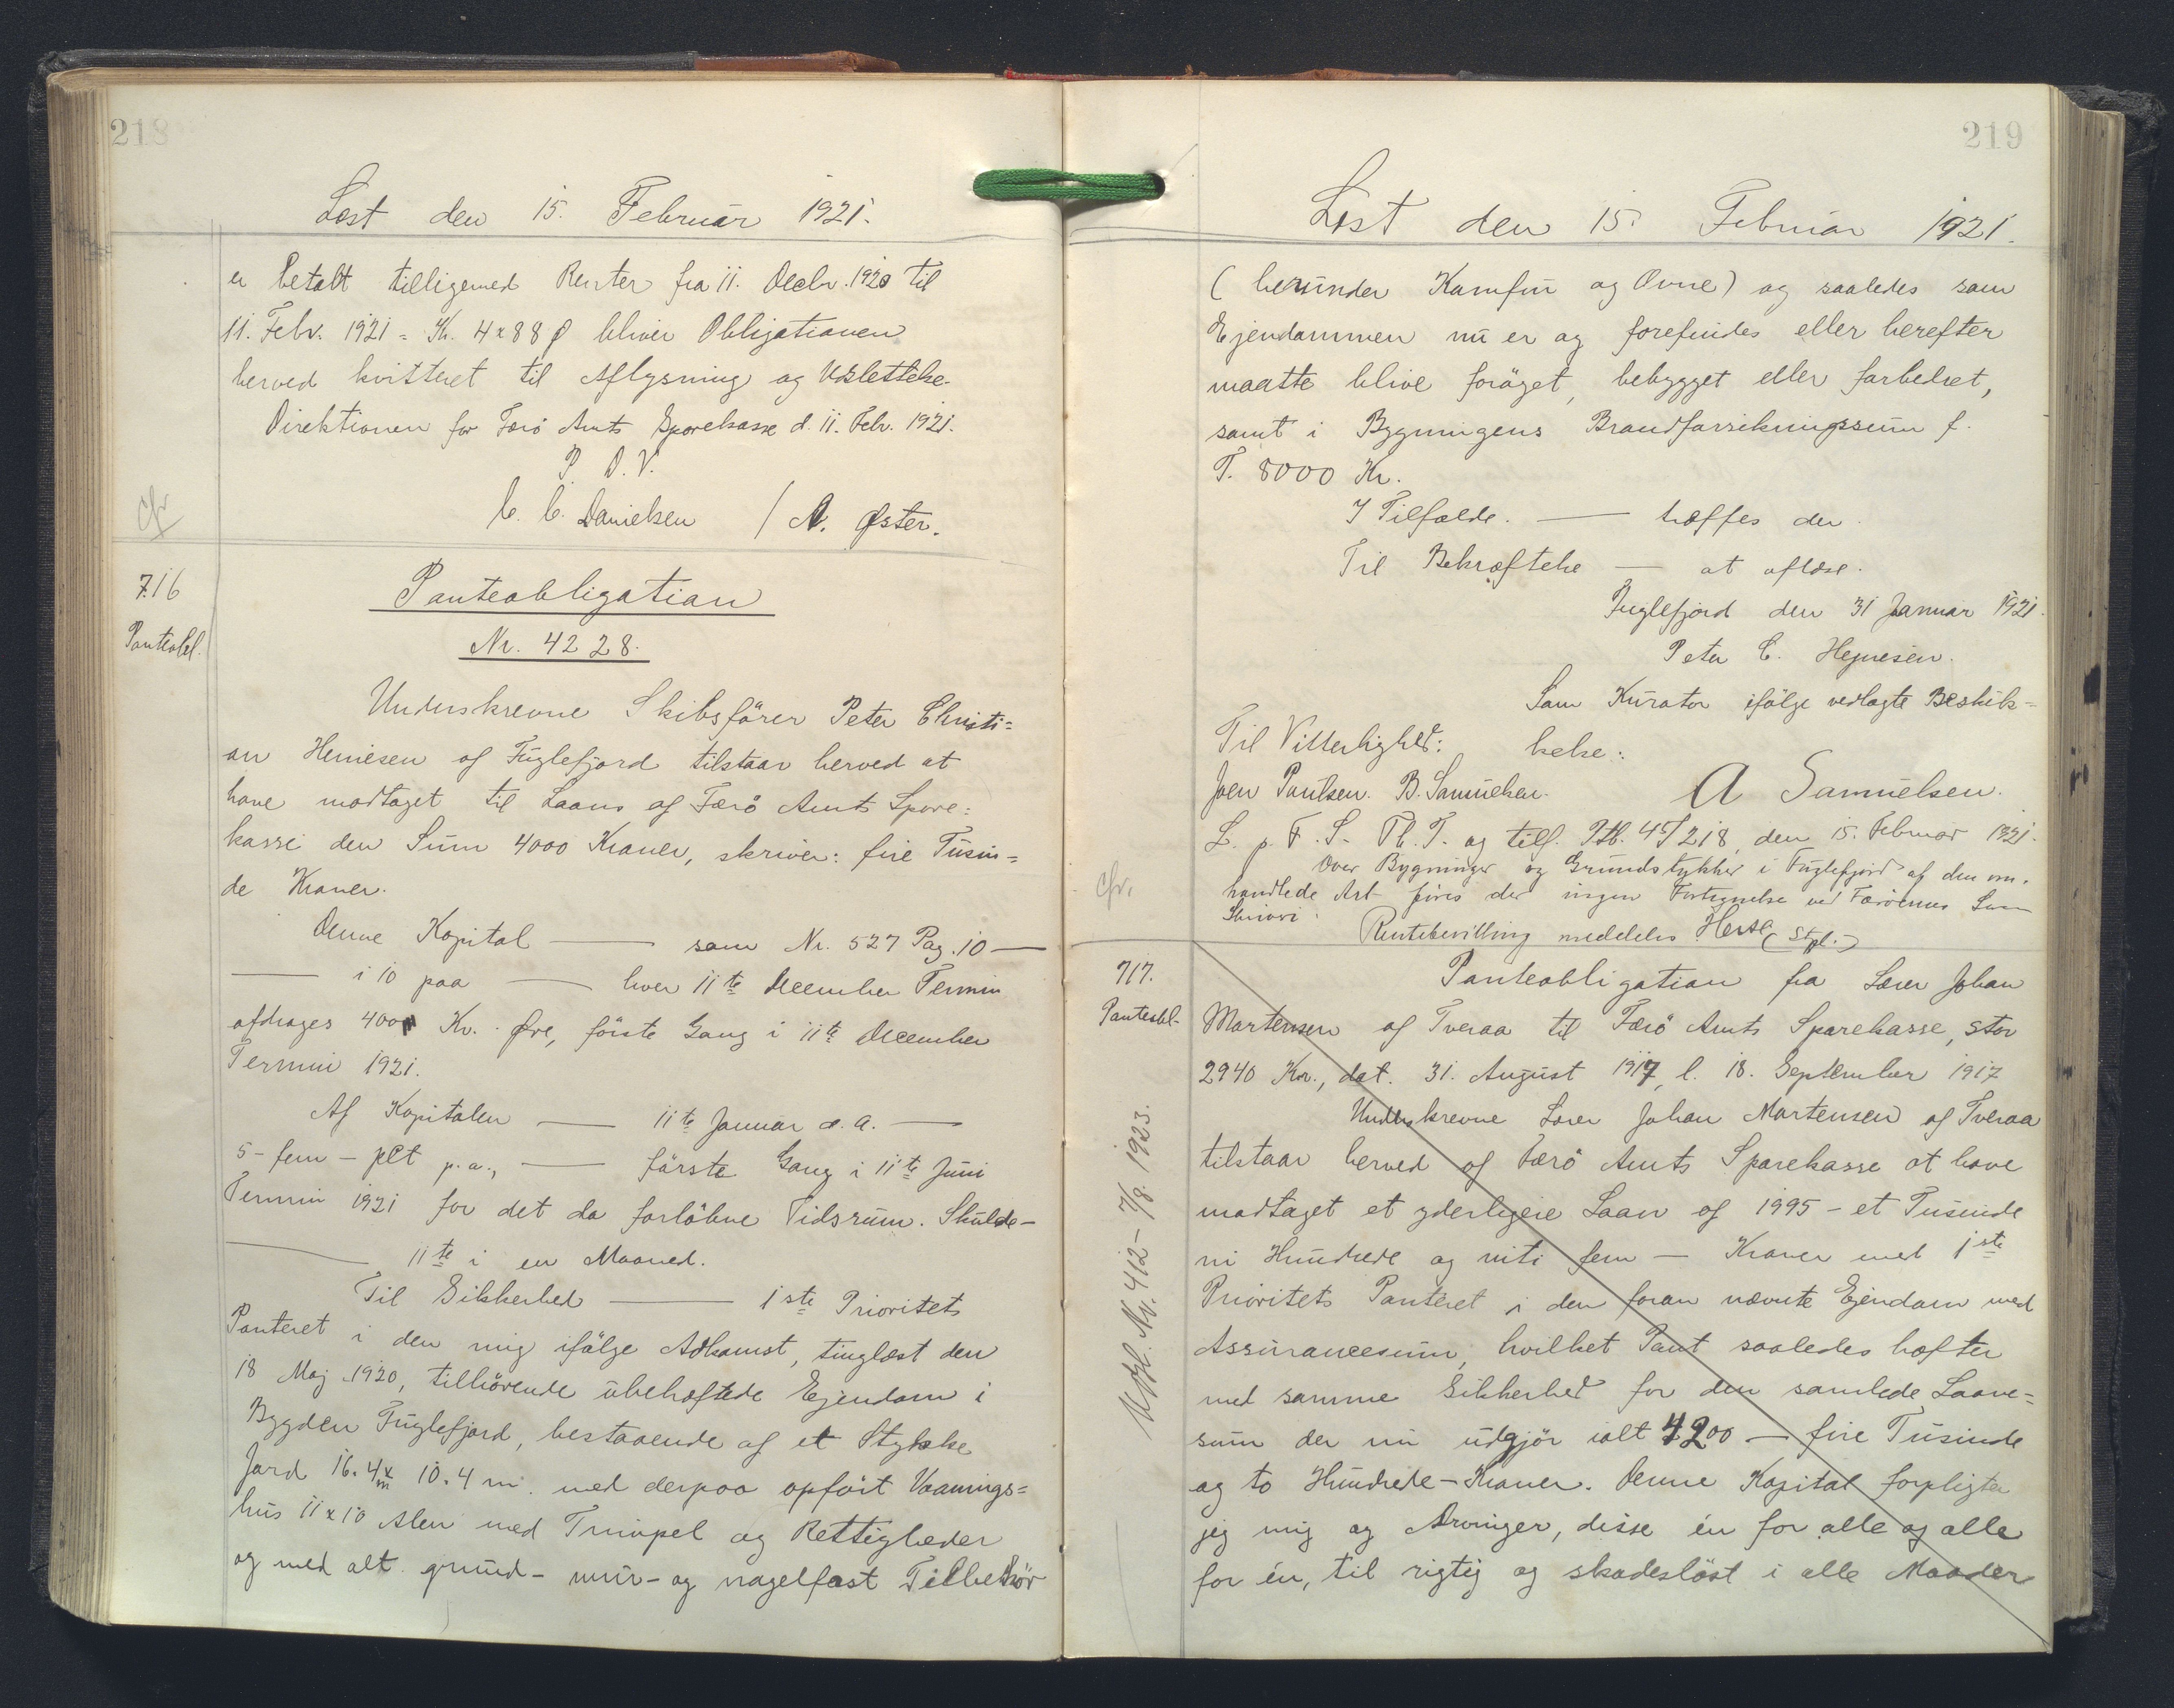 218
Læst den 15. Februar 1921.
er betalt tilligemed Renter fra 11. Decbr. 1920 til
11. Febr. 1921 = Kr. 4x88 Ø bliver Obligationen
herved kvitteret til Aflysning og Udslettelse.
Direktionen for Færö Amts Sparekasse d. 11. Febr. 1921.
P. D. V.
C. C. Danielsen / A. Øster.
cfr
716
Panteobl.
Panteobligation
Nr. 4228.
Underskrevne Skibsförer Peter Christi=
an Heinesen af Fuglefjord tilstaar herved at
have modtaget til Laans af Færö Amts Spare=
kasse den Sum 4000 Kroner, skriver: fire Tusin=
de Kroner.
Denne Kapital — som Nr. 527 Pag. 10 —
— i 10 paa — hver 11te December Termin
afdrages 400 Kr. - Øre, förste Gang i 11te December
Termin 1921.
Af Kapitalen — 11te Januar d. A. —
5 - fem - pCt p. a., — förste Gang i 11te Juni
Termin 1921 for det da forlöbne Tidsrum. Skulde —
— 11te i en Maaned.
Til Sikkerhed — 1ste Prioritets
Panteret i den mig ifölge Adkomst, tinglæst den
18 Maj 1920, tilhörende übehæftede Ejendom i
Bygden Fuglefjord, bestaaende af et Stykke
Jord 16.4 m x 10.4 m. med derpaa opfört Vaanings=
hus 11 x 10 Alen med Tinipel og Rettigheder
og med alt grund- mur- og nagelfast Tilbehör
219
Læst den 15. Februar 1921.
(herunder Kamfur og Ovne) og saaledes som
Ejendommen nu er og forefindes eller herefter
maatte blive foröget, bebygget eller forbedret,
samt i Bygningens Brandforsikringssum f.
T. 8000 Kr.
I Tilfælde. — træffes der.
Til Bekræftelse — at aflæse.
Fuglefjord den 31 Januar 1921.
Peter C. Hejnesen.
Som Kurator ifölge vedlagte Beskik=
Til Vitterlighed: kelse:
Joen Poulsen. B. Samuelsen. A Samuelsen.
L. p. F. S. Th. T. og tilf. Ptb. 45/218, den 15. Februar 1921.
Over Bygninger og Grundstykker i Fuglefjord af den om-
cfr.
handlede Art föres der ingen Fortegnelse ved Færöernes Sor
Rentebevilling meddeles (Stpl.)
717.
Panteobl.
Panteobligation fra Lærer Johan
Mortensen af Tveraa til Færö Amts Sparekasse, stor
2940 Kr., dat. 31. August 1917, l. 18. September 1917
Underskrevne Lærer Johan Mortensen af Tveraa
tilstaar herved af Færö Amts Sparekasse at have
modtaget et yderligere Laan af 1995 - et Tusinde
ni Hundrede og niti fem - Kroner med 1ste
Prioritets Panteret i den foran nævnte Ejendom med
Assurancesum, hvilket Pant saaledes hæfter
med samme Sikkerhed for den samlede Laane=
sum der nu udgjör ialt 4200 - fire Tusinde
og to Hundrede - Kroner. Denne Kapital forpligter
jeg mig og Arvinger, disse én for alle og alle
for én, til rigtig og skadeslöst i alle Maader
Udsl. Nr. 412 - 7/8. 1923.